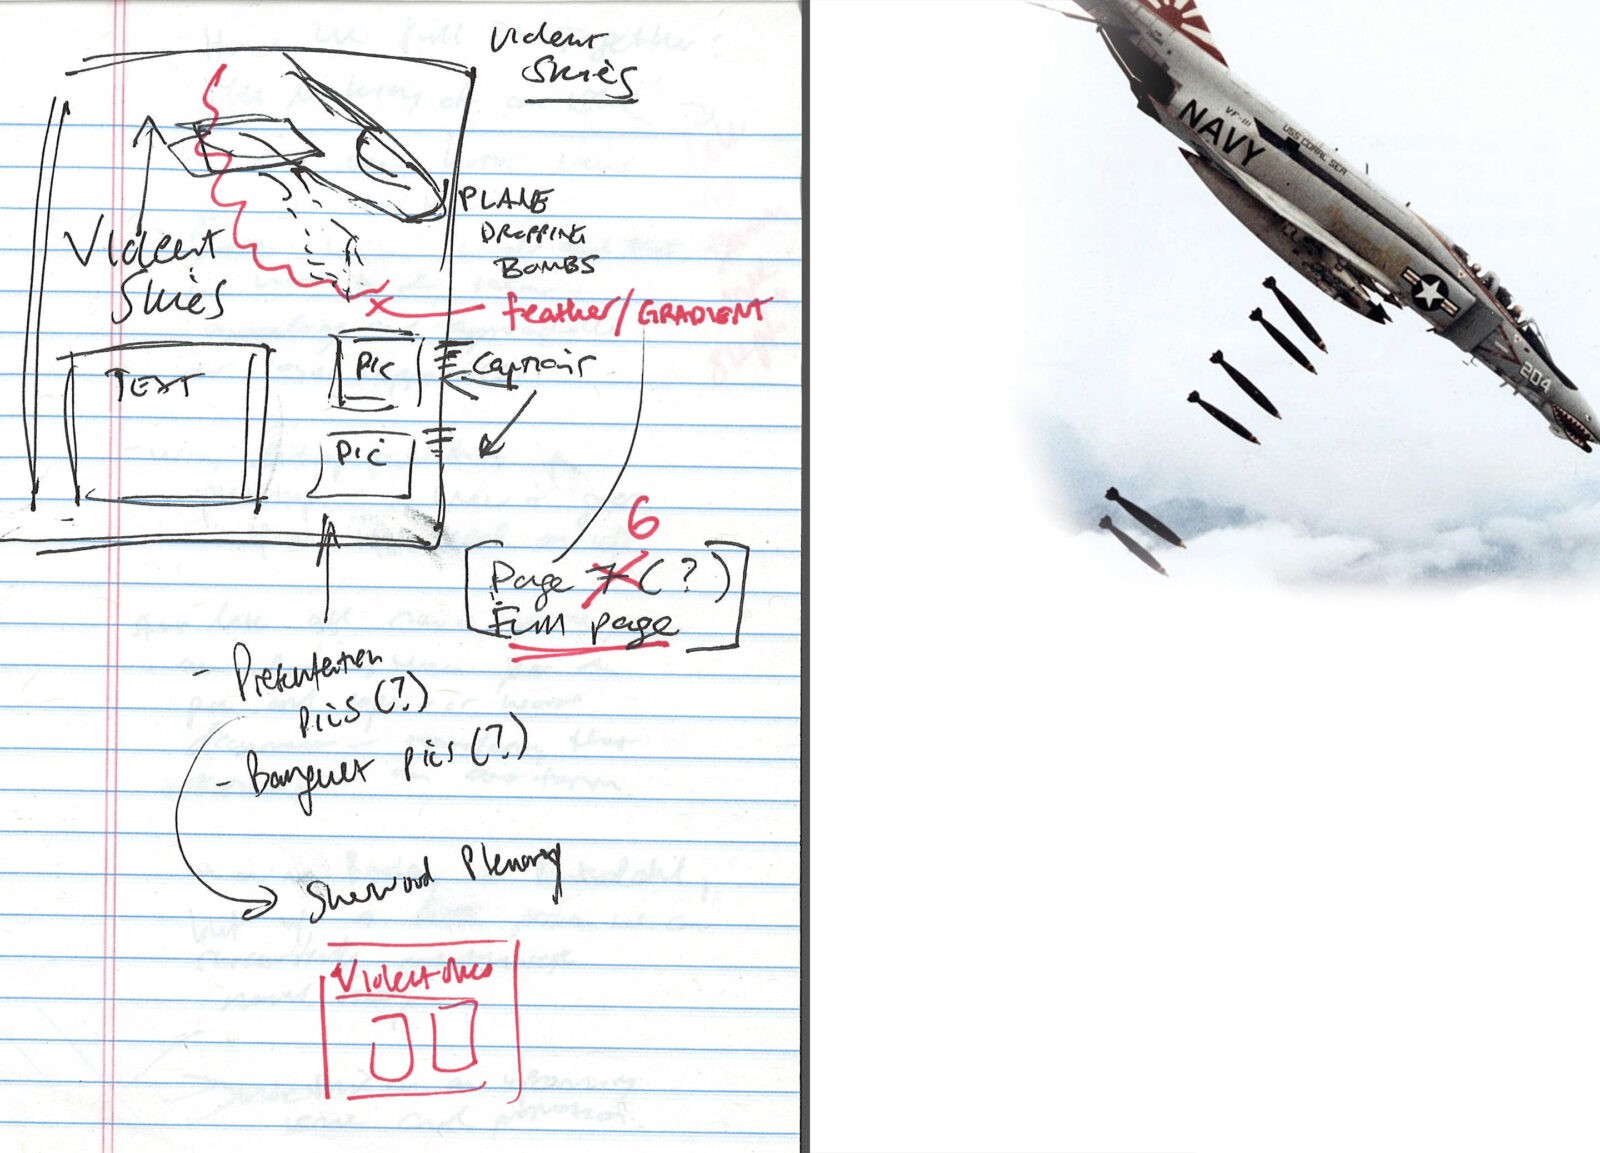 Violent
Skies
PLANE
DROPPING
BOMBS
Violent
Skies
feather/GRADIENT
Pic
Caption
TEXT
Pic
6
Page 7 (?)
Full page
- Presentation
pics (?)
- Banquet pics (?)
Sherwood Plenary
Violent Skies
NAVY
VF-111
USS CORAL SEA
204